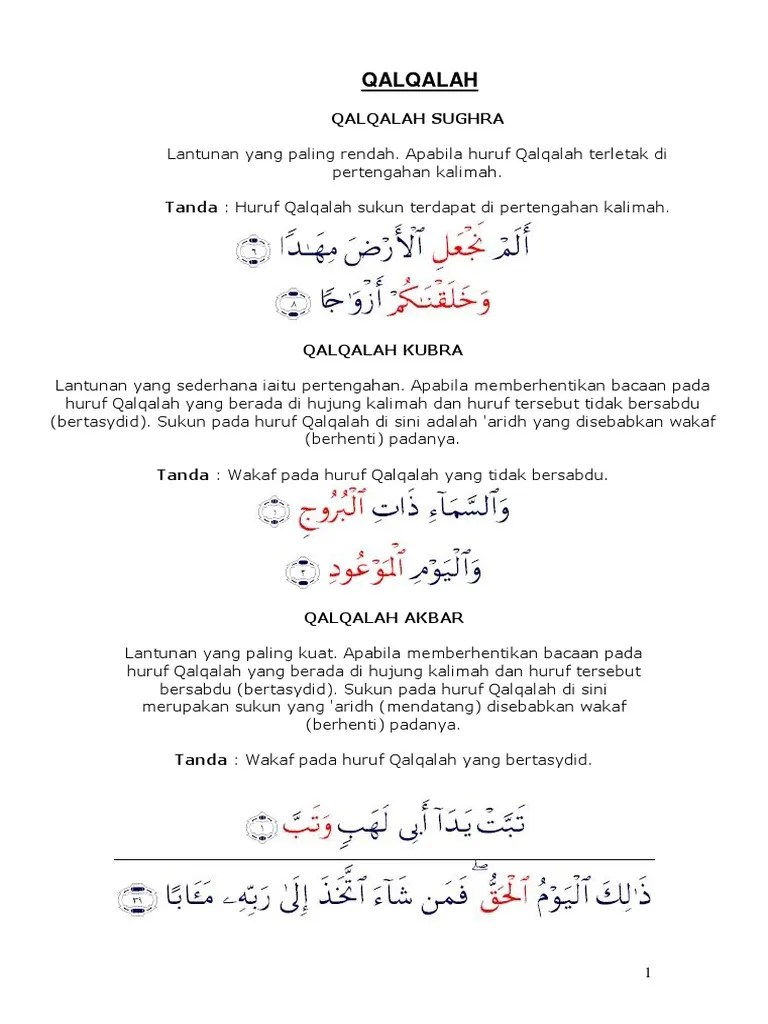 QALQALAH
QALQALAH SUGHRA
Lantunan yang paling rendah. Apabila huruf Qalqalah terletak di
pertengahan kalimah.
Tanda : Huruf Qalqalah sukun terdapat di pertengahan kalimah.
أَلَمْ نَجْعَلِ ٱلْأَرْضَ مِهَـٰدًا ٦
وَخَلَقْنَـٰكُمْ أَزْوَٰجًا ٨
QALQALAH KUBRA
Lantunan yang sederhana iaitu pertengahan. Apabila memberhentikan bacaan pada
huruf Qalqalah yang berada di hujung kalimah dan huruf tersebut tidak bersabdu
(bertasydid). Sukun pada huruf Qalqalah di sini adalah 'aridh yang disebabkan wakaf
(berhenti) padanya.
Tanda : Wakaf pada huruf Qalqalah yang tidak bersabdu.
وَٱلسَّمَآءِ ذَاتِ ٱلْبُرُوجِ ١
وَٱلْيَوْمِ ٱلْمَوْعُودِ ٢
QALQALAH AKBAR
Lantunan yang paling kuat. Apabila memberhentikan bacaan pada
huruf Qalqalah yang berada di hujung kalimah dan huruf tersebut
bersabdu (bertasydid). Sukun pada huruf Qalqalah di sini
merupakan sukun yang 'aridh (mendatang) disebabkan wakaf
(berhenti) padanya.
Tanda : Wakaf pada huruf Qalqalah yang bertasydid.
تَبَّتْ يَدَآ أَبِى لَهَبٍ وَتَبَّ ١
ذَٰلِكَ ٱلْيَوْمُ ٱلْحَقُّ ۖ فَمَن شَآءَ ٱتَّخَذَ إِلَىٰ رَبِّهِۦ مَـَٔابًا ٣٩
1